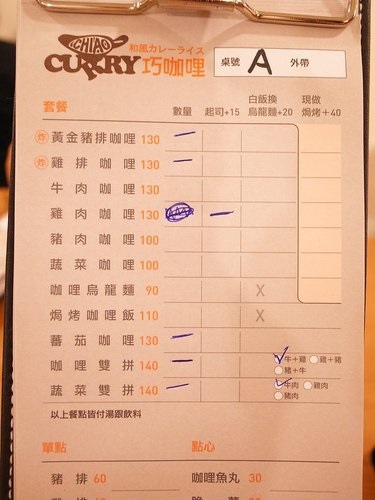 ICHIAO
CURRY 巧咖哩
和風カレーライス
桌號 A 外帶
套餐 數量 起司+15 白飯換烏龍麵+20 現做焗烤+40
炸 黃金豬排咖哩 130 一
炸 雞排咖哩 130 一
牛肉咖哩 130
雞肉咖哩 130 一
豬肉咖哩 100
蔬菜咖哩 100
咖哩烏龍麵 90 X
焗烤咖哩飯 110 X
蕃茄咖哩 130 一
咖哩雙拼 140 一 ✓牛+雞 ○雞+豬
○豬+牛
蔬菜雙拼 140 一 ✓牛肉 ○雞肉
○豬肉
以上餐點皆付湯跟飲料
單點 點心
豬排 60 咖哩魚丸 30